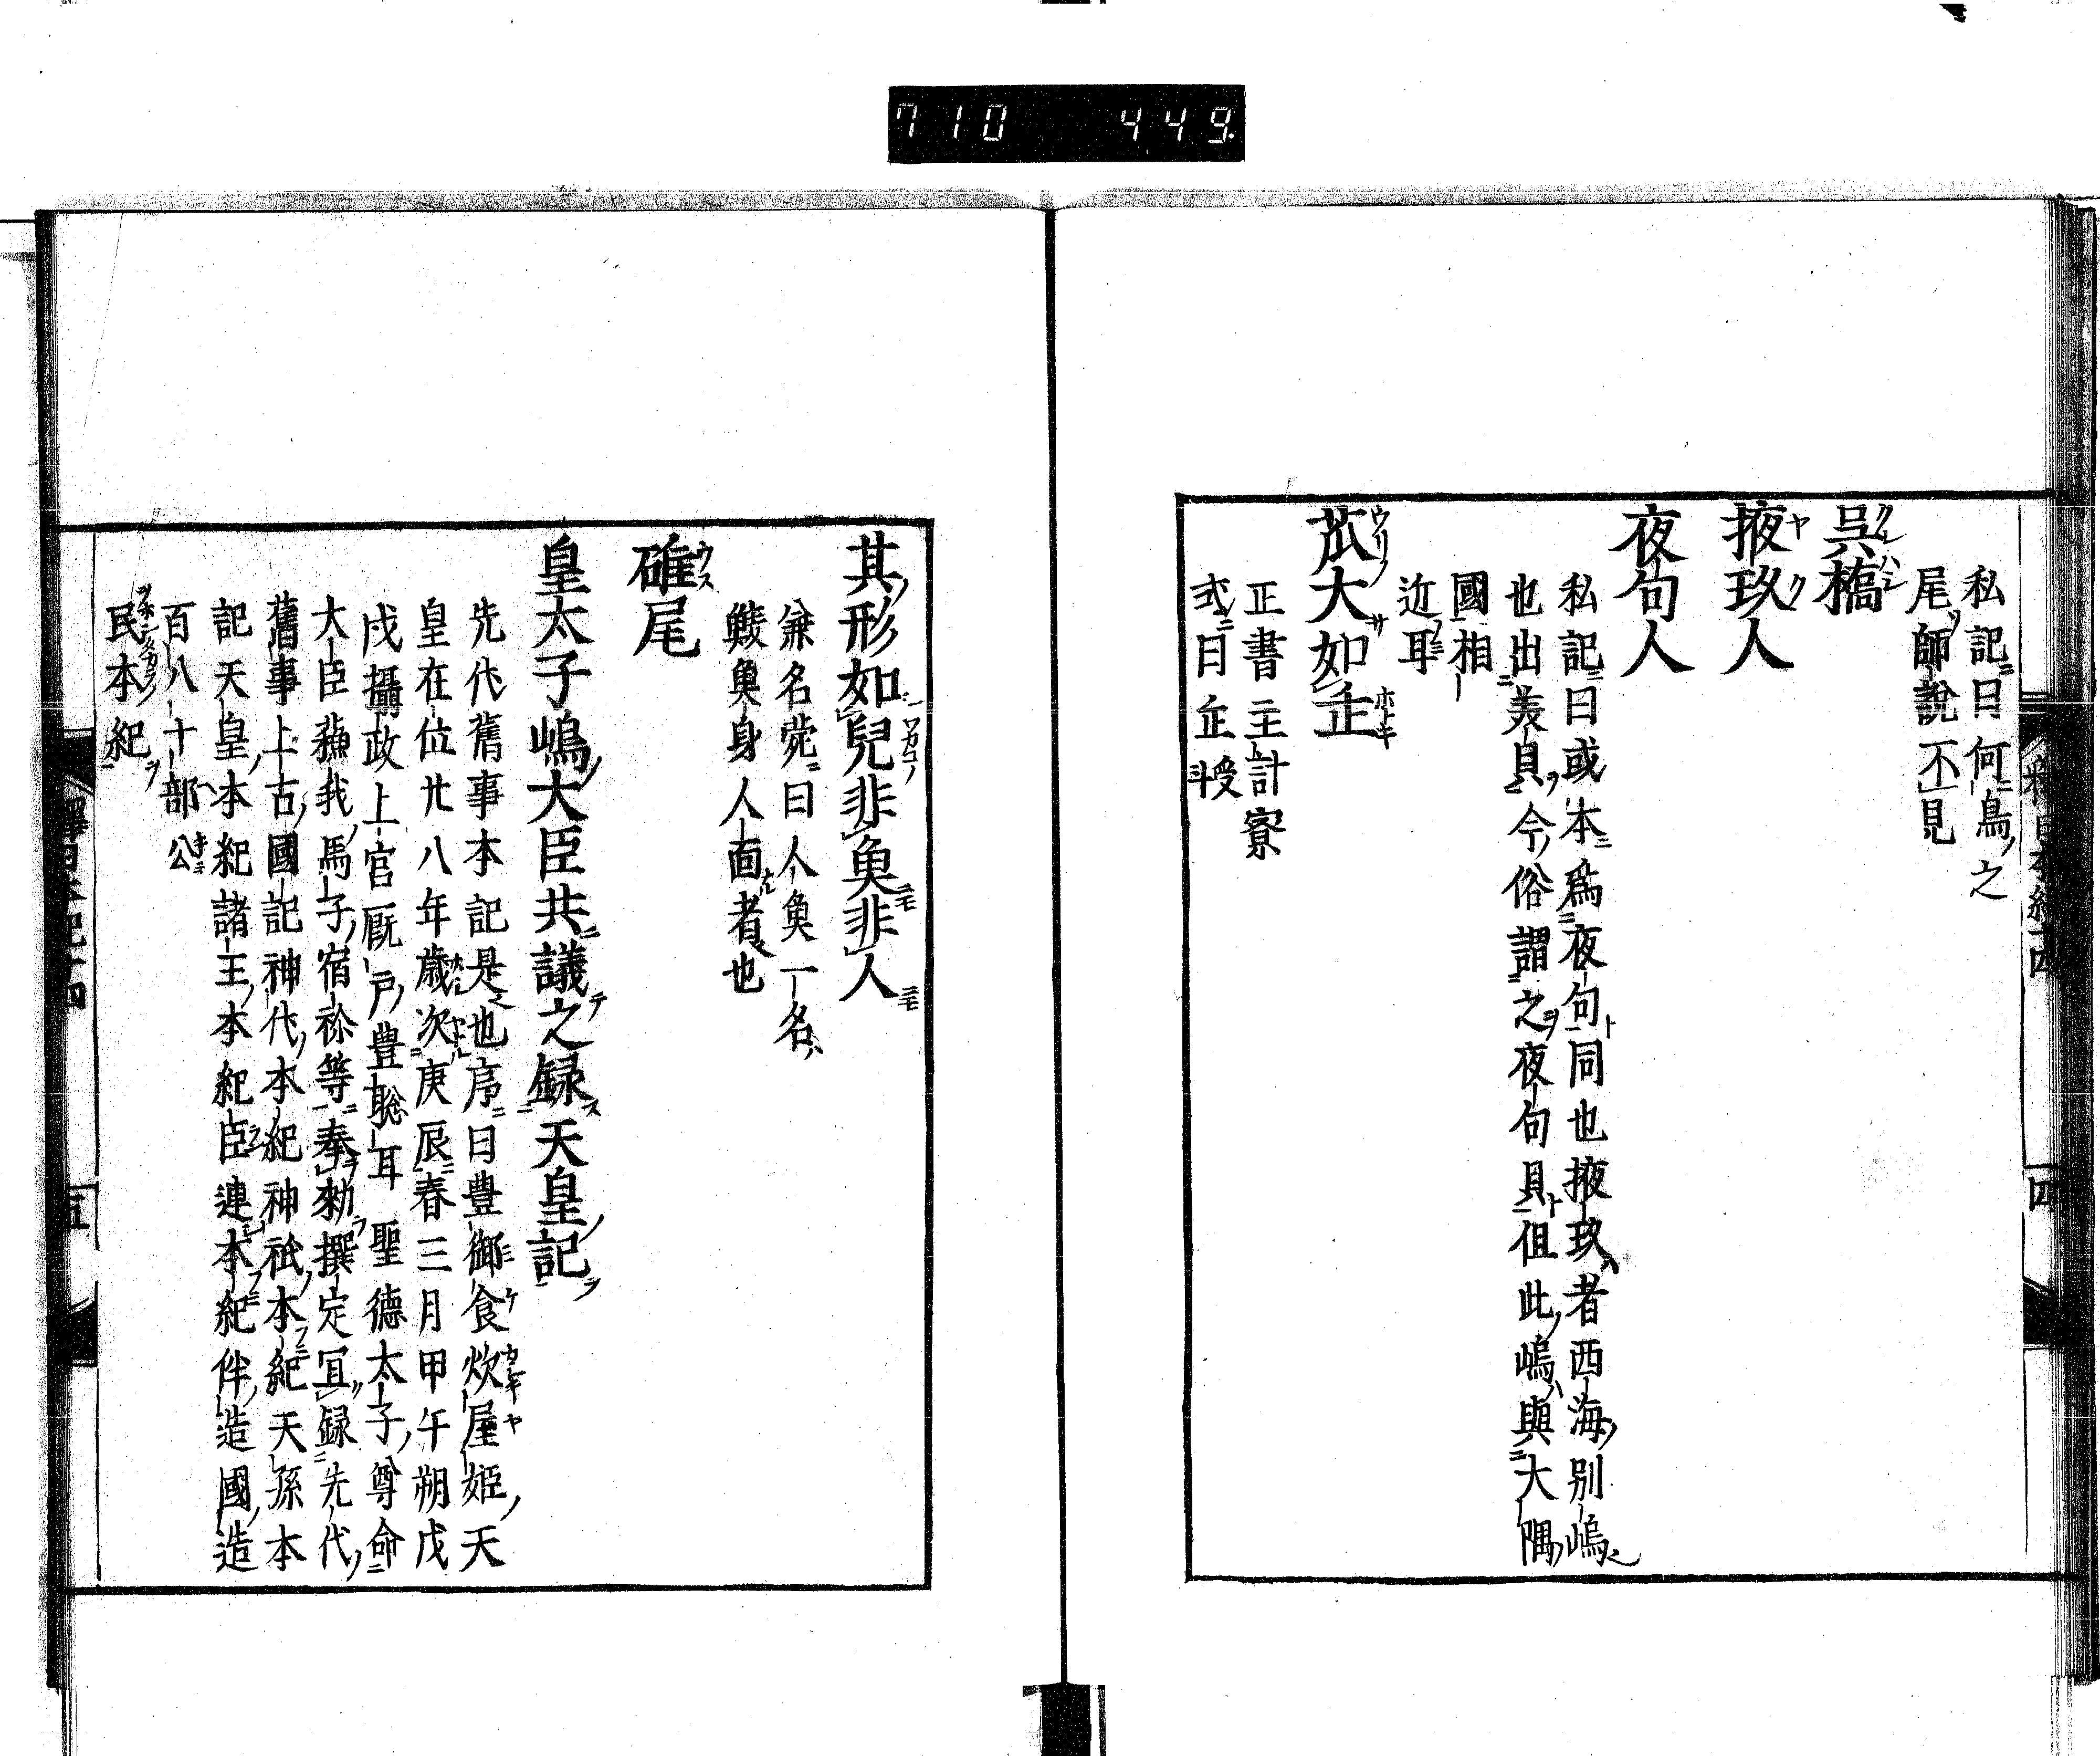 710 449
私記曰何鳥之
尾師說不見
呉橋
掖玖人
夜句人
私記曰或本爲夜句同也掖玖者西海別嶋
也出美貝今俗謂之夜句貝但此嶋與大隅
國相
近耳
苽大如缶
正書主計寮
式曰缶受斗
其形如兒非魚非人
兼名苑曰人魚一名
鯪魚身人面者也
碓尾
皇太子嶋大臣共議之録天皇記
先代舊事本記是也序曰豊御食炊屋姫天
皇在位廿八年歳次庚辰春三月甲午朔戊
戌攝政上官厩戸豊聡耳聖德太子尊命
大臣蘇我馬子宿祢等奉勅撰定冝録先代
舊事上古國記神代本紀神祇本紀天孫本
記天皇本紀諸王本紀臣連本紀伴造國造
百八十部公
民本紀
釋日本紀十四
五
四